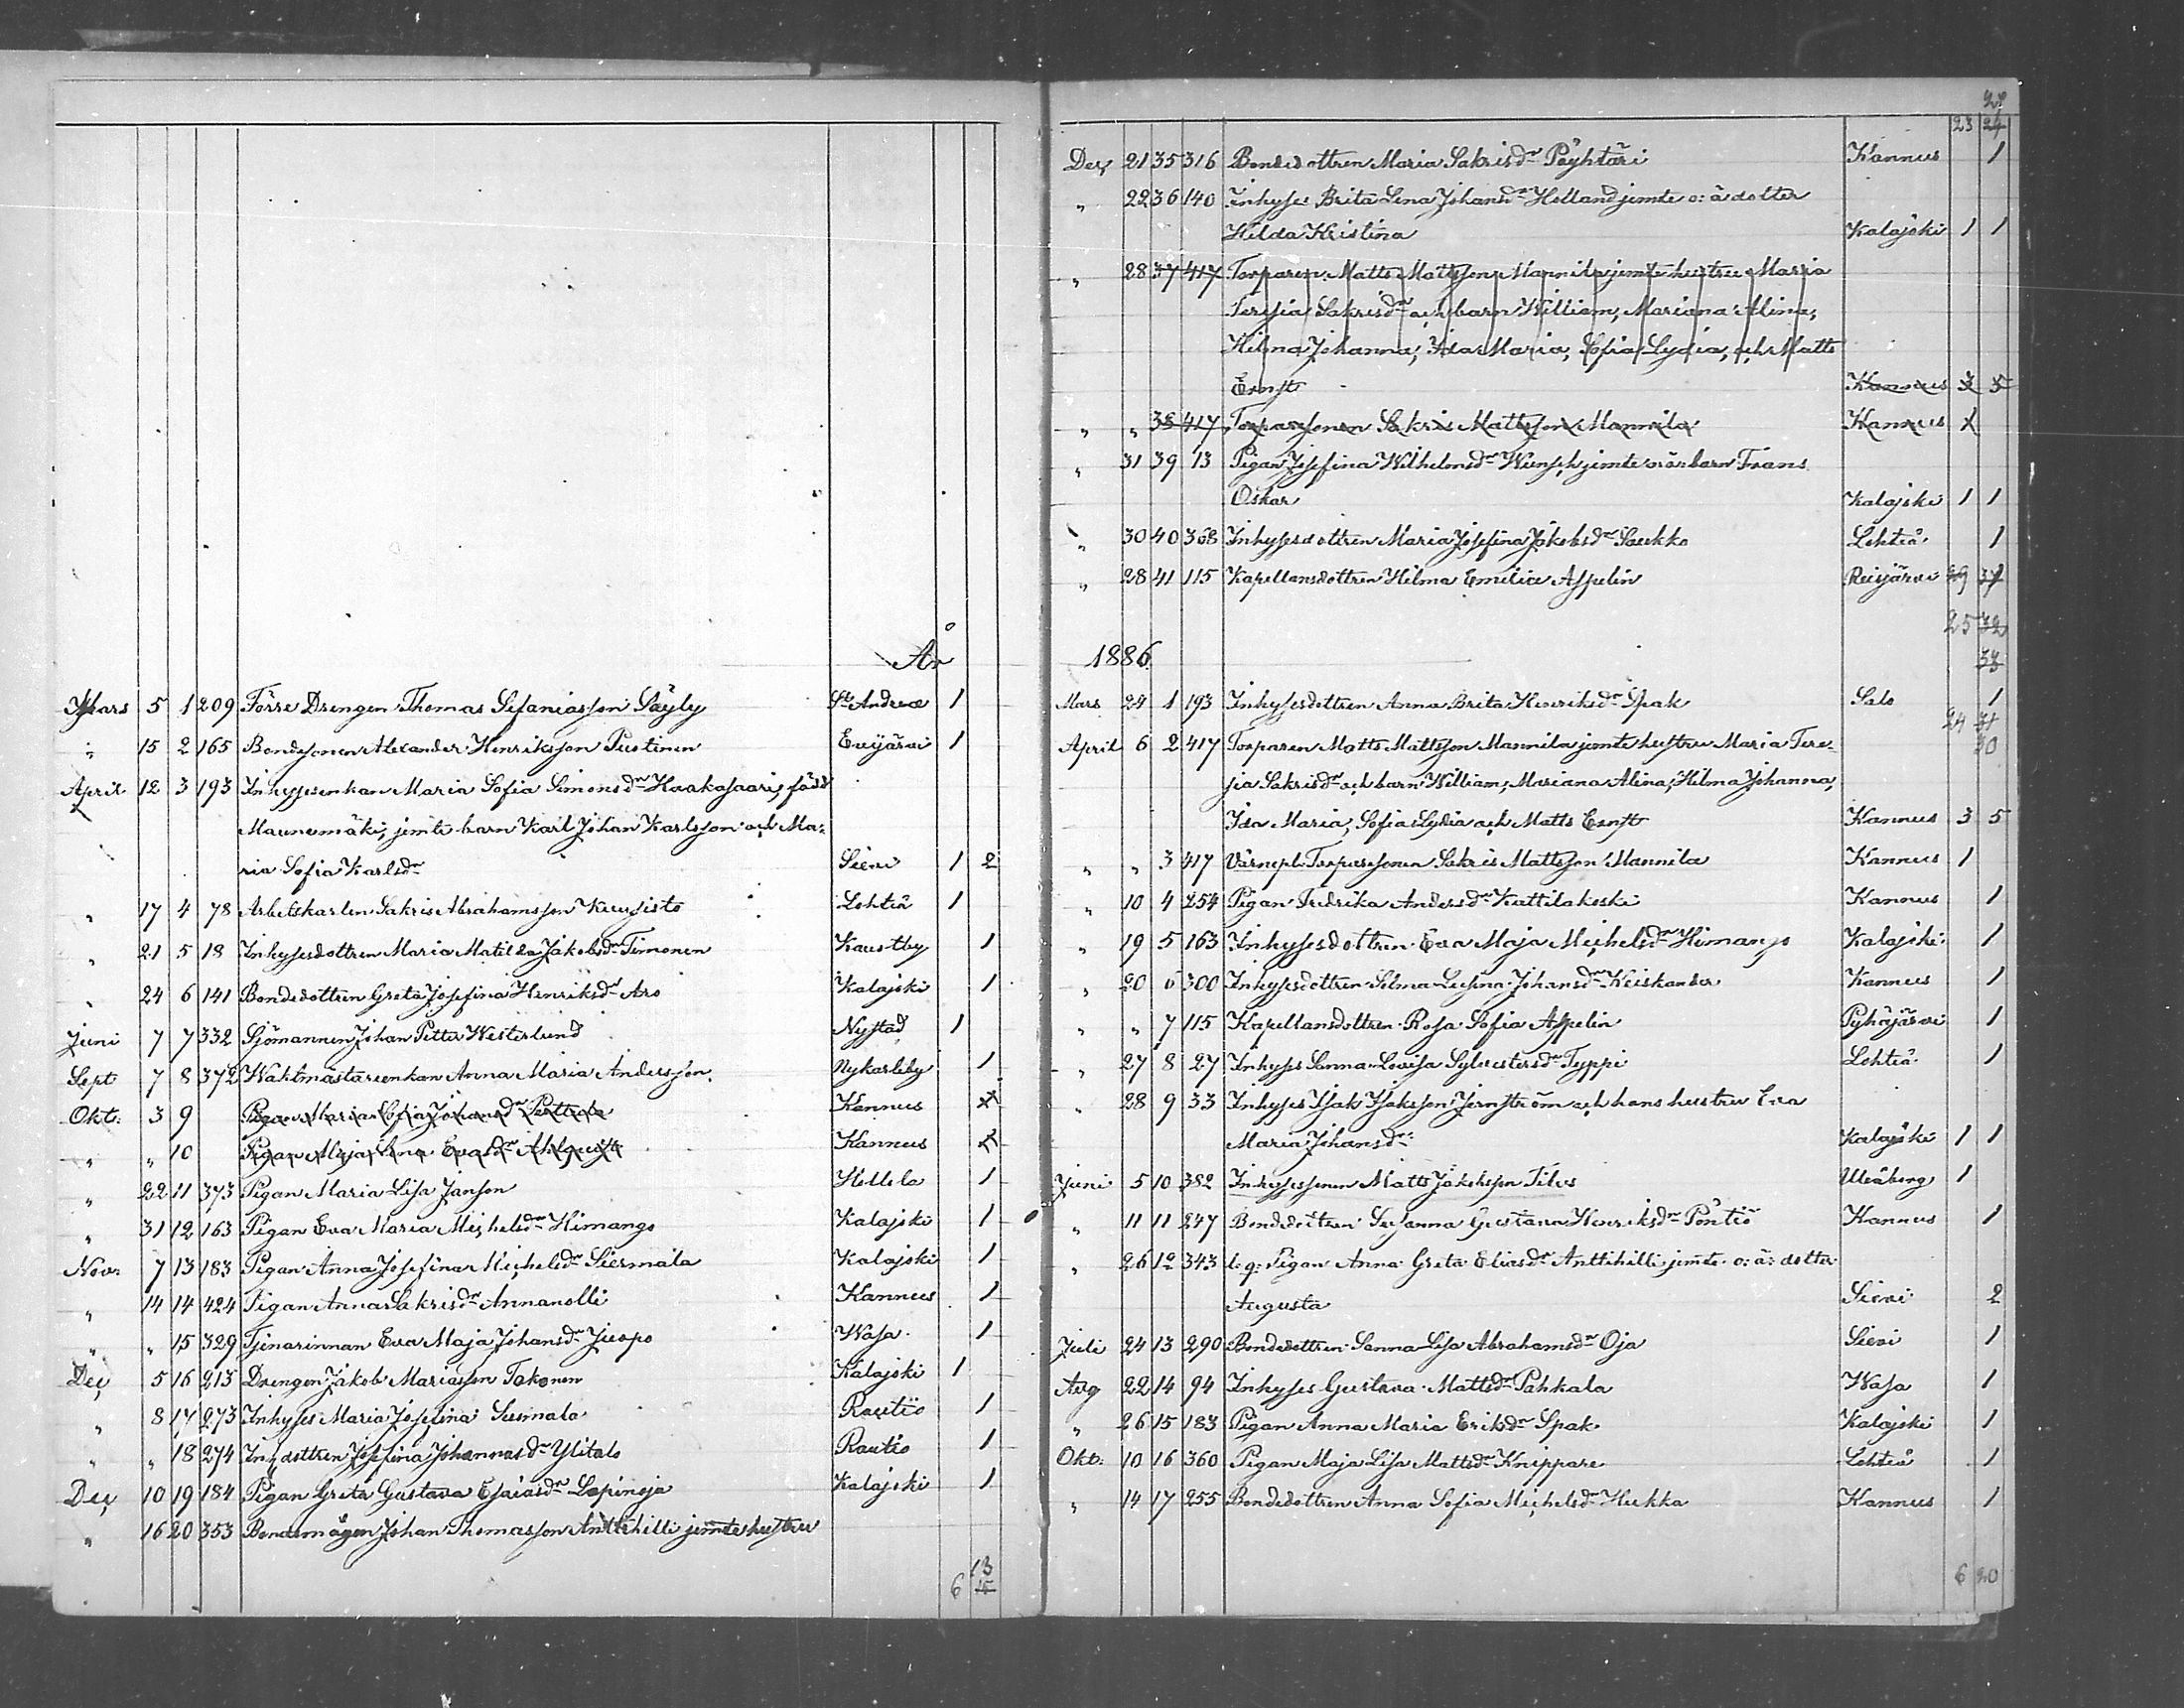 År
Mars 5 1 209 Förre Drengen Thomas Sefaniasson Säyly St Andreæ 1
" 15 2 165 Bondesonen Alexander Henriksson Pustinen Evijärvi 1
April 12 3 193 Inhysesenkan Maria Sofia Simonsdr Haakasaari, född
Maunumäki, jemte barn Karl Johan Karlsson och Ma-
ria Sofia Karlsdr Sievi 1 2
" 17 4 78 Arbetskarlen Sakris Abrahamsson Kuusisto Lohteå 1
" 21 5 18 Inhysesdottren Maria Matilda Jakobsdr Timonen Kaustby 1
" 24 6 141 Bondedottren Greta Josefina Henriksdr Aro Kalajoki 1
Juni 7 7 332 Sjömannen Johan Petter Westerlund Nystad 1
Sept 7 8 372 Waktmästareenkan Anna Maria Andersson Nykarleby 1
Okt. 3 9 Pigan Maria Sofia Johansdr Penttala Kannus
" " 10 Pigan Maja Lena Evasdr Ahlqvist Kannus
" 22 11 373 Pigan Maria Lisa Janson 1
" 31 12 163 Pigan Eva Maria Michelsdr Himango Kalajoki 1
Nov. 7 13 183 Pigan Anna Josefina Michelsdr Siermala Kalajoki 1
" 14 14 424 Pigan Anna Sakrisdr Annanolli Kannus 1
" " 15 329 Tjenarinnan Eva Maja Johansdr Juopo Wasa 1
Dec 5 16 213 Drengen Jakob Mariasson Takonen Kalajoki 1
" 8 17 273 Inhyses Maria Josefina Susmala Rautio 1
" " 18 274 Inh dottren Josefina Johannasdr Ylitalo Rautio 1
Dec 10 19 184 Pigan Greta Gustava Esaiasdr Lapinoja Kalajoki 1
" 16 20 353 Bondemågen Johan Thomasson Anttihilli jemte hustru
13
6 15
28
23 24
Dec 21 35 316 Bondedottren Maria Sakrisdr Pöyhtäri Kannus 1
" 22 36 140 Inhyses Brita Lena Johansdr Holland jemte o: ä dotter
Hilda Kristina Kalajoki 1 1
" 28 37 417 Torparen Matts Mattsson Mannila jemte hustru Maria
Teresia Sakrisdr och barn William, Mariana Alina,
Hilma Johanna, Ida Maria, Sofia Lydia, och Matts
Ernst Kannus 3 5
" " 38 417 Torparesonen Sakris Mattsson Mannila Kannus 1
" 31 39 13 Pigan Josefina Wilhelmsdr Wunsch jemte o: ä: barn Frans
Oskar Kalajoki 1 1
" 30 40 368 Inhysesdottren Maria Josefina Jakobsdr Saukko Lohteå 1
" 28 41 115 Kapellansdottren Hilma Emilia Aspelin Reisjärvi
25 32
33
1886
Mars 24 1 193 Inhysesdottren Anna Brita Henriksdr Spak Salo 1
24 31
30
April 6 2 417 Torparen Matts Mattsson Mannila jemte hustru Maria Tere-
sia Sakrisdr och barn William, Mariana Alina, Hilma Johanna,
Ida Maria, Sofia Lydia och Matts Ernst Kannus 3 5
" " 3 417 Värnepl. Torparesonen Sakris Mattsson Mannila Kannus 1
" 10 4 254 Pigan Fredrika Andersdr Kuttilakoski Kannus 1
" 19 5 163 Inhysesdottren Eva Maja Michelsdr Himango Kalajoki 1
" 20 6 300 Inhysesdottren Selma Lusina Johansdr Keiskander Kannus 1
" " 7 115 Kapellansdottren Rosa Sofia Aspelin Pyhäjärvi 1
" 27 8 27 Inhyses Sanna Lovisa Sylvestersdr Typpi Lohteå 1
" 28 9 33 Inhyses Isak Isaksson Jernström och hans hustru Eva
Maria Johansdr Kalajoki 1 1
Juni 5 10 382 Inhysessonen Matts Jakobsson Tilus Uleåborg 1
" 11 11 247 Bondedottren Susanna Gustava Henriksdr Pöntiö Kannus 1
" 26 12 343 l: q: Pigan Anna Greta Eliasdr Anttihilli jemte o: ä: dotter
Augusta Sievi 2
Juli 24 13 290 Bondedottren Sanna Lisa Abrahamsdr Oja Sievi 1
Aug 22 14 94 Inhyses Gustava Mattsdr Pahkala Wasa 1
" 26 15 183 Pigan Anna Maria Eriksdr Spak Kalajoki 1
Okt. 10 16 360 Pigan Maja Lisa Mattsdr Knippare Lohteå 1
" 14 17 255 Bondedottren Anna Sofia Michelsdr Hukka Kannus 1
6 20